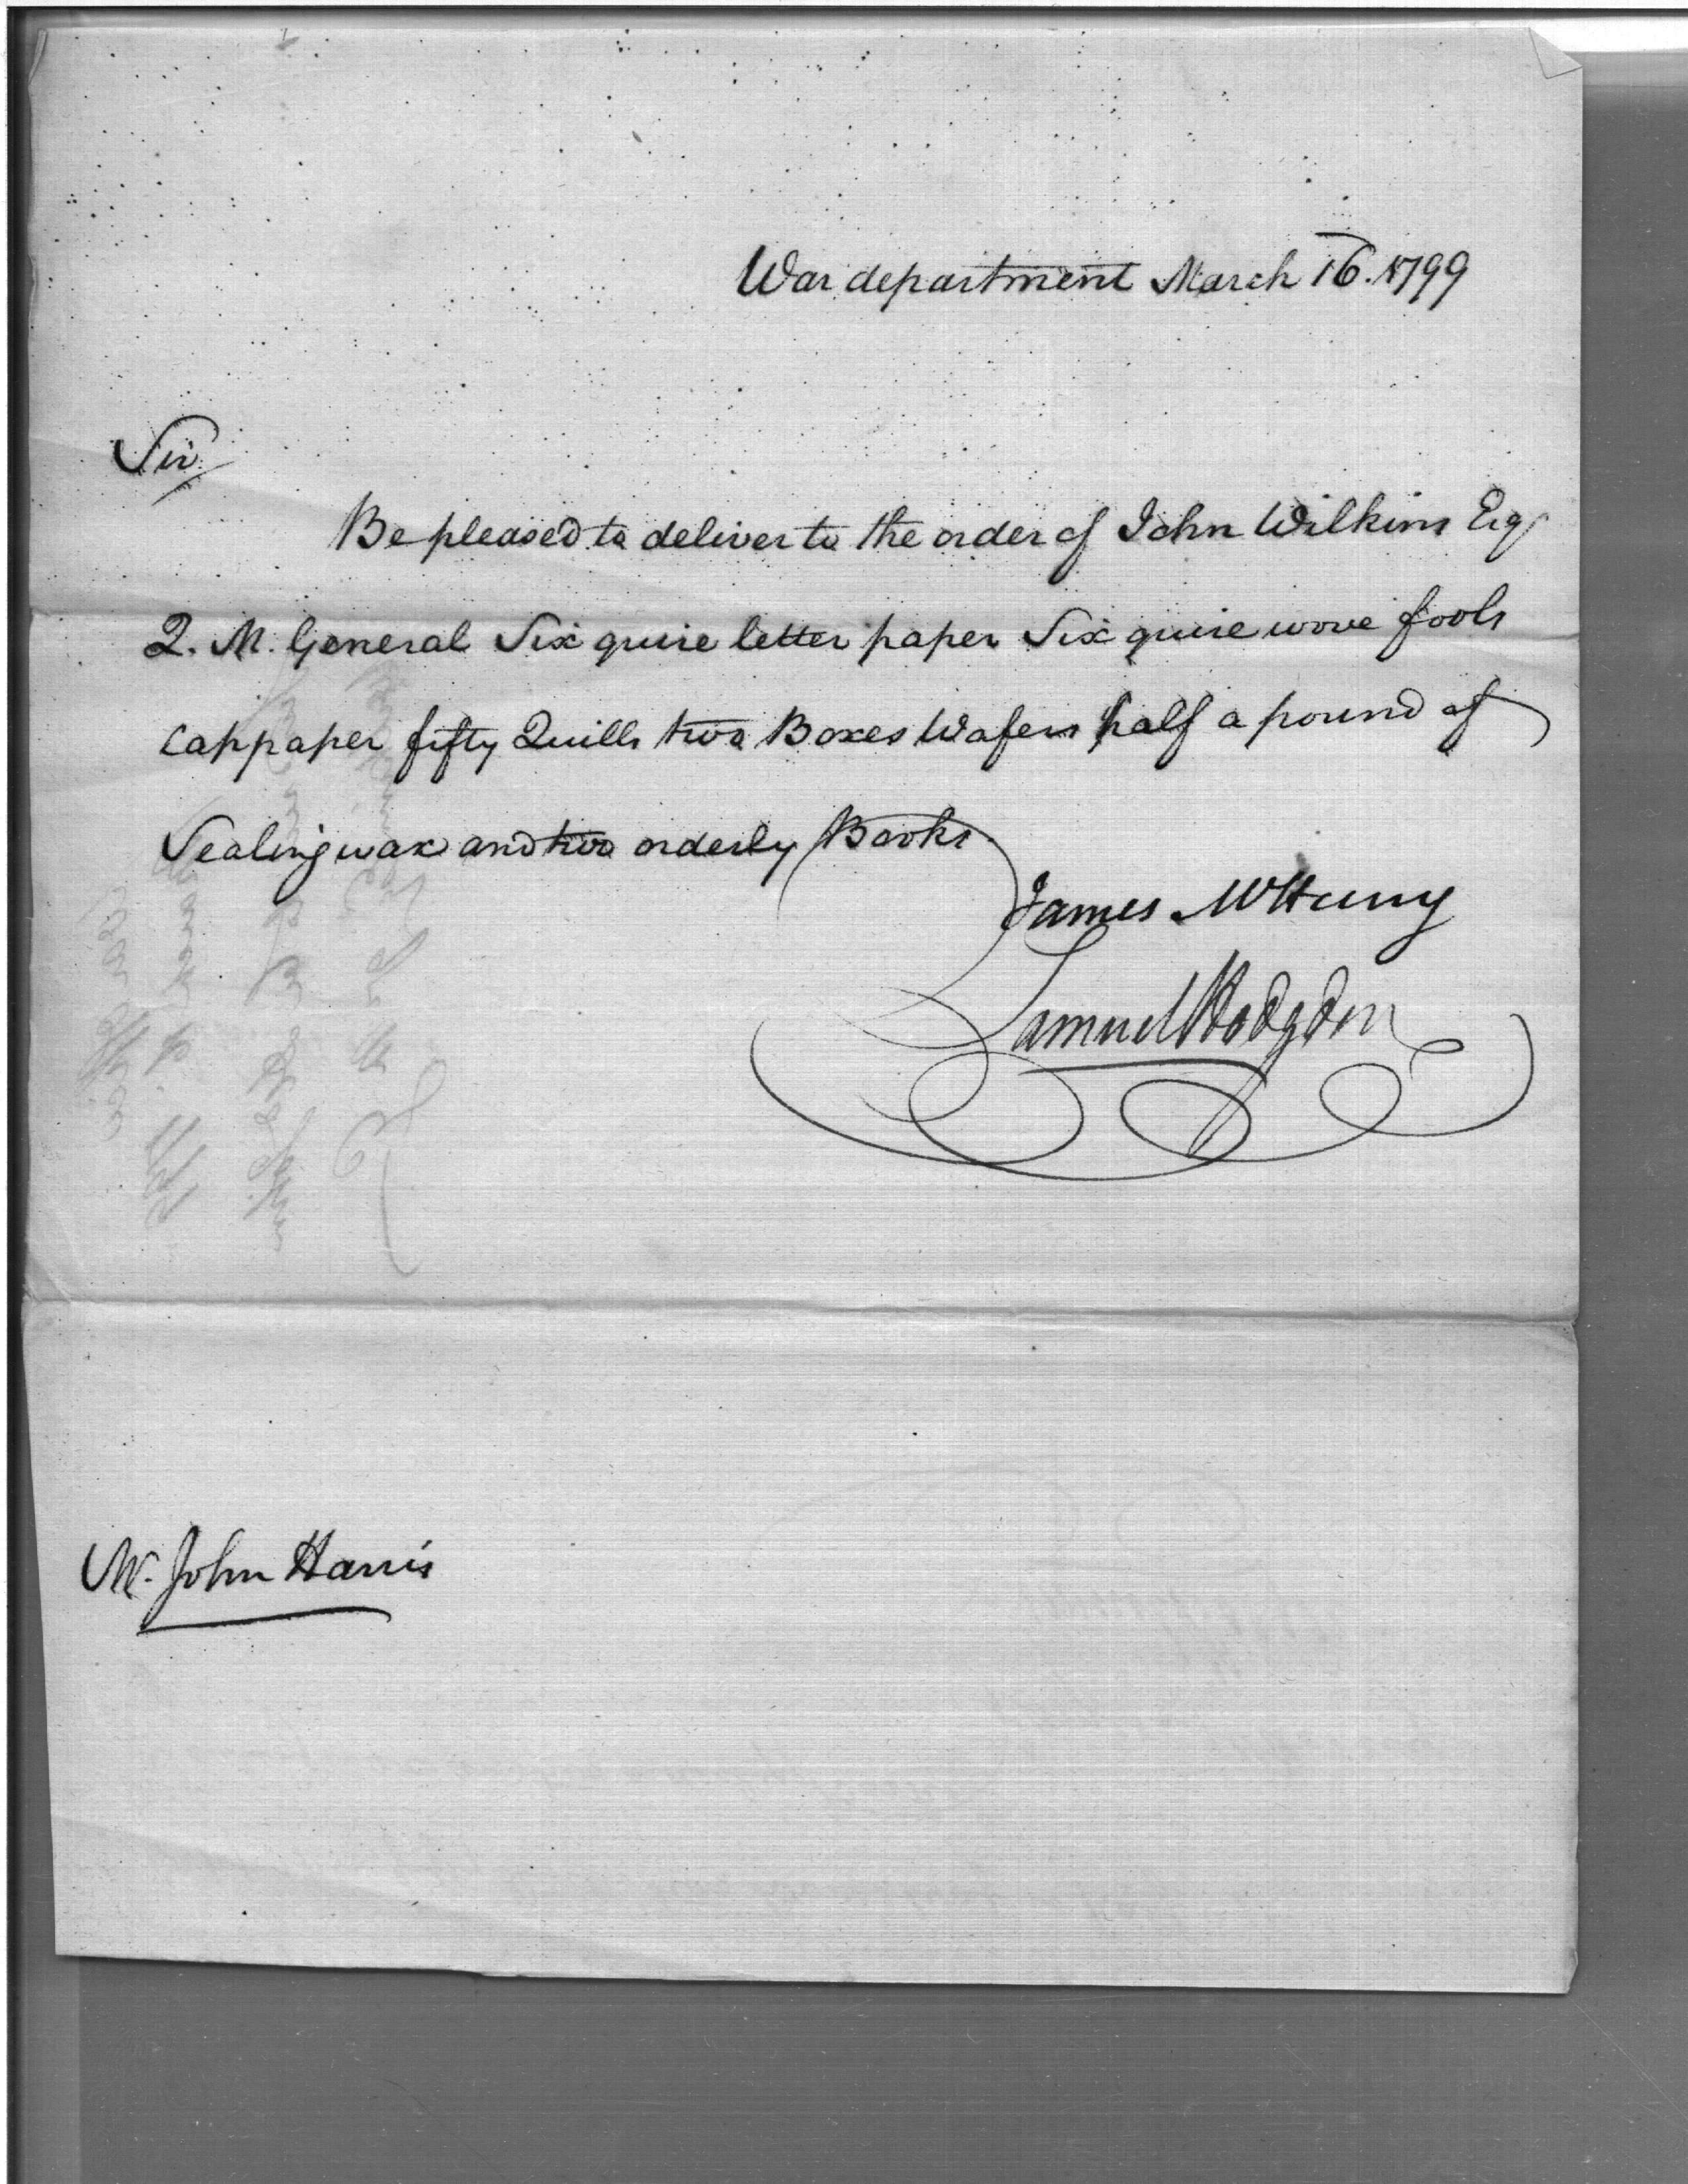 War department March 16. 1799
Sir
Be pleased to deliver to the order of John Wilkins Esq
Q. M. General Six quire letter paper Six quire wove fools
cap paper fifty Quills two Boxes Wafers half a pound of
Sealing wax and two orderly Books
James McHenry
Samuel Hodgdon
Mr. John Harris